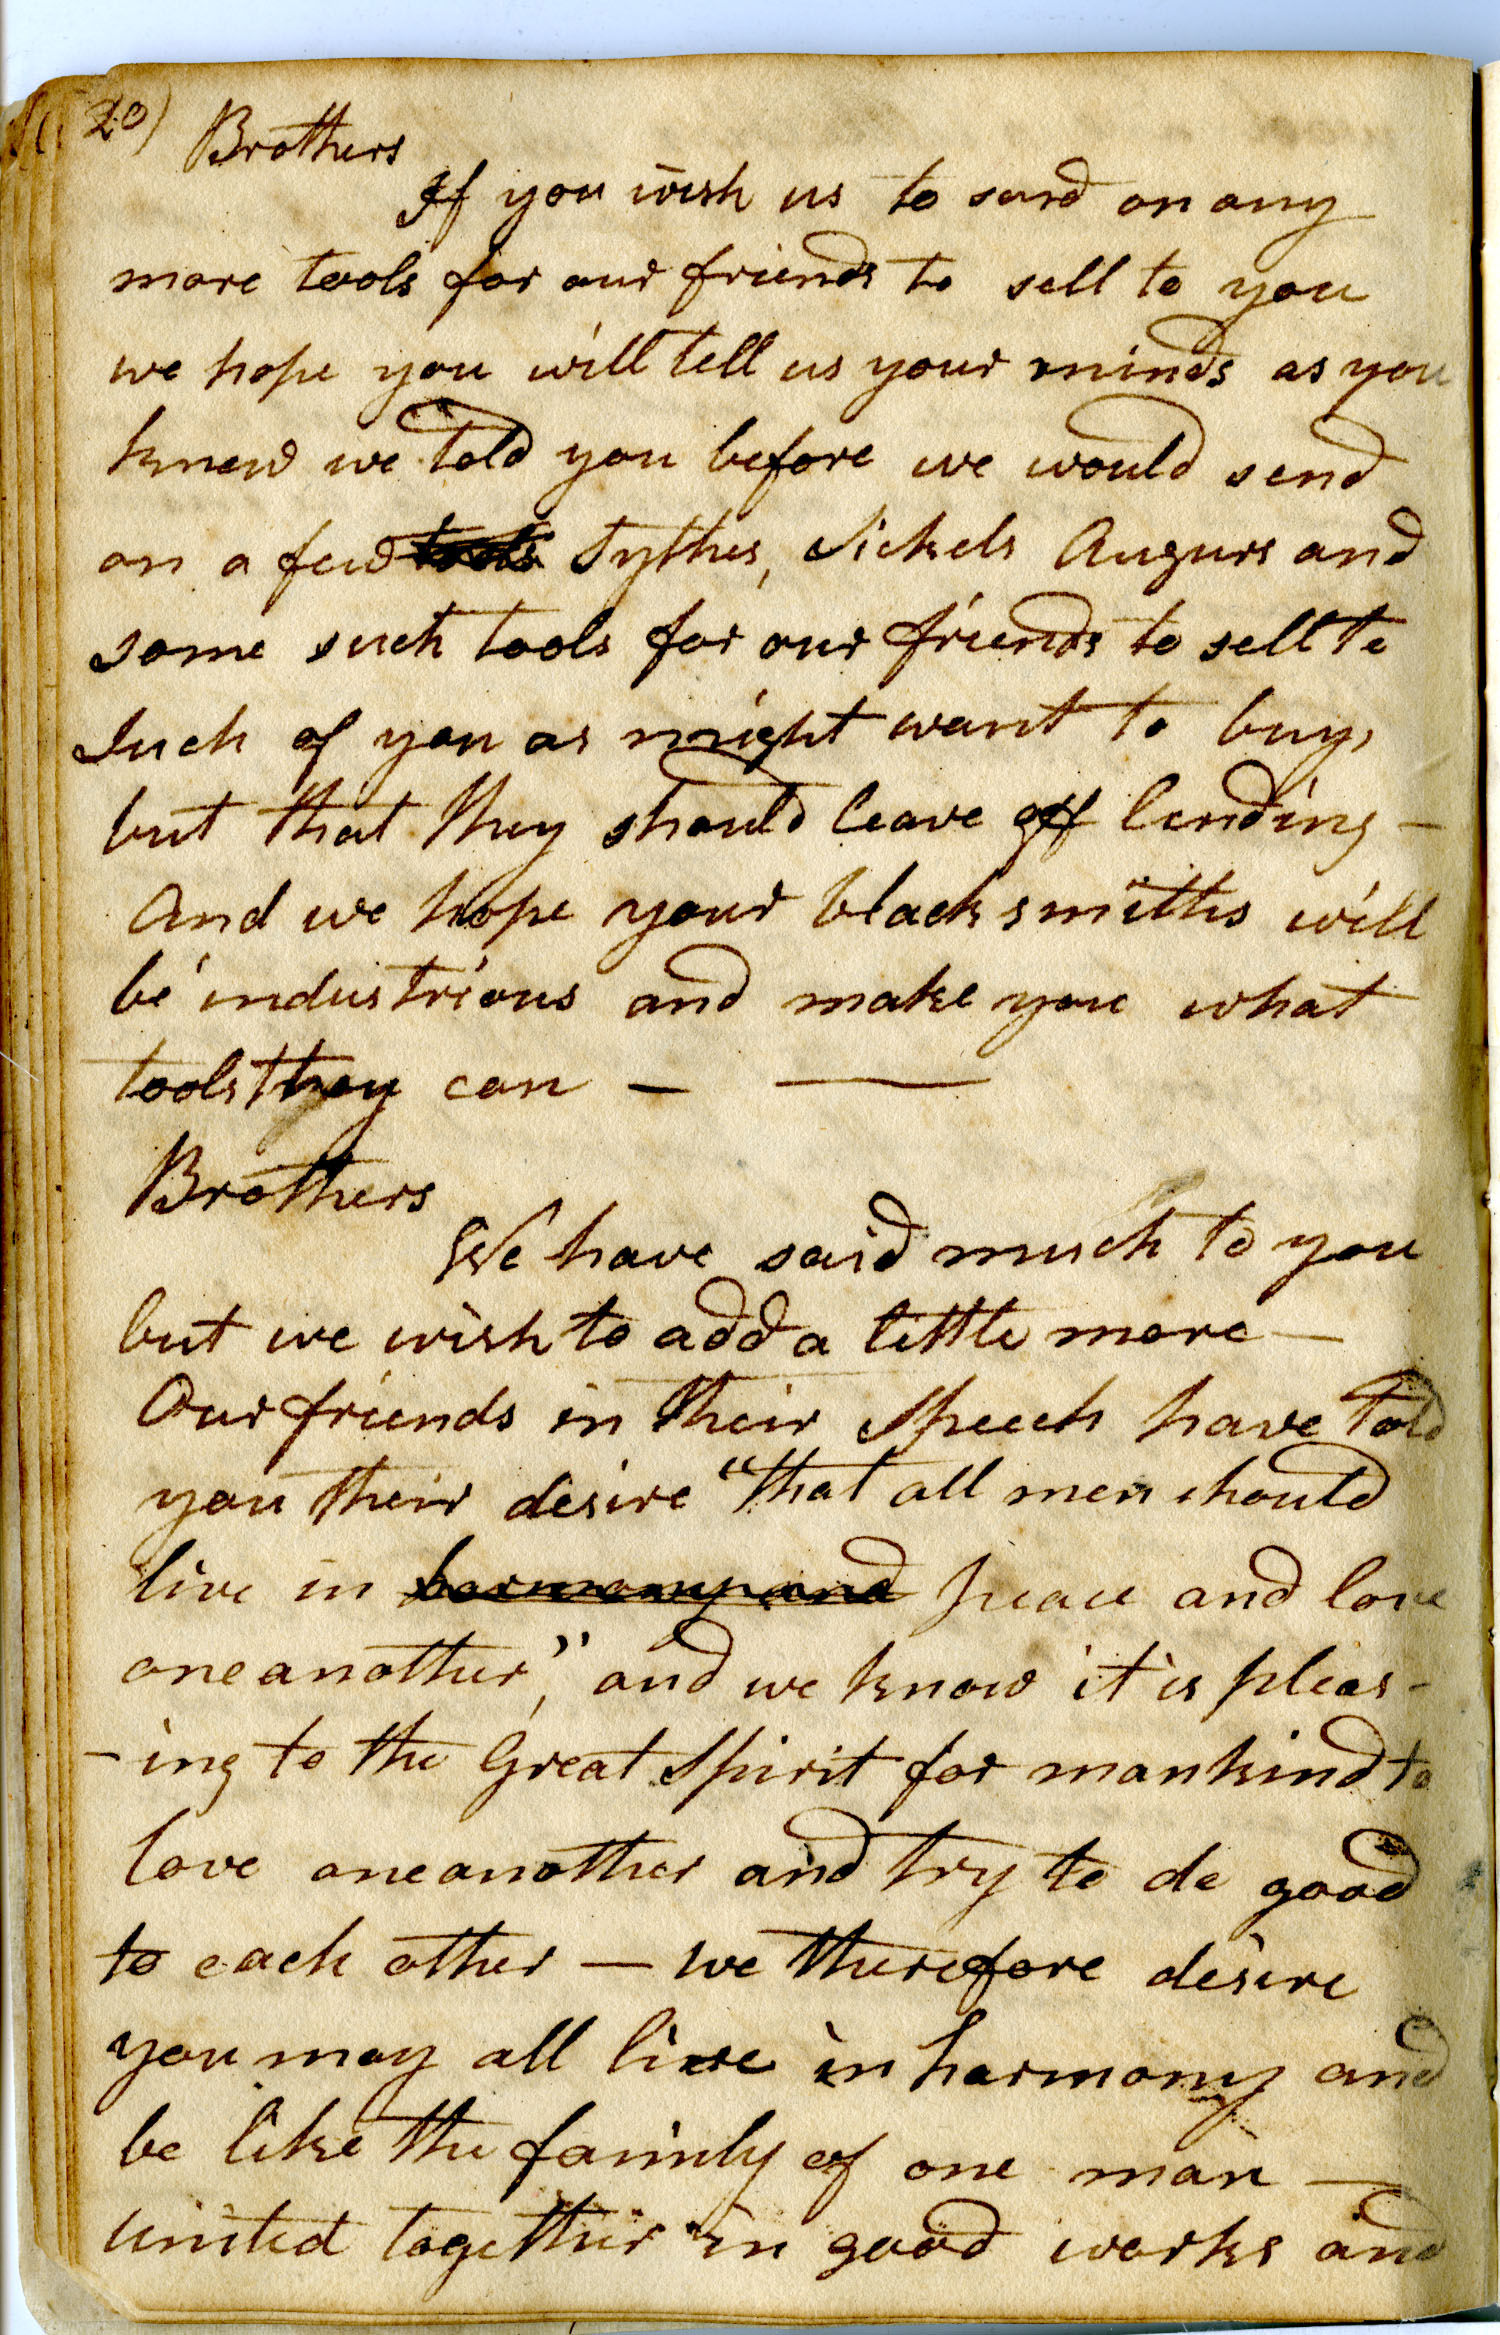 20)
Brothers
If you wish us to send on any
more tools for our friends to sell to you
we hope you will tell us your minds as you
know we told you before we would send
on a few tools Sythes, Sickels Augurs and
some such tools for our friends to sell to
Such of you as might want to buy,
but that they should leave off lending —
And we hope your blacksmiths will
be industrious and make you what
tools they can — —
Brothers
We have said much to you
but we wish to add a little more —
Our friends in their Speech have told
you their desire "that all men should
live in harmony and peace and love
one another", and we know it is pleas-
-ing to the Great Spirit for mankind to
love one another and try to do good
to each other — we therefore desire
you may all live in harmony and
be like the family of one man —
united together in good works and